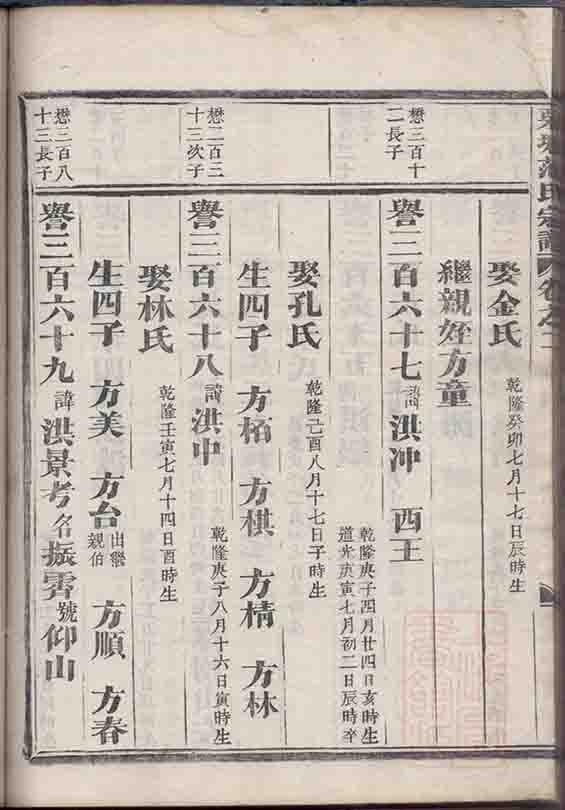 范氏宗譜 卷之二
娶金氏 乾隆癸卯七月十七日辰時生
繼親姪方童
懋三百十
二長子
譽三百六十七 諱 洪沖 西王 乾隆庚子四月廿四日亥時生
道光庚寅七月初二日辰時卒
娶孔氏 乾隆己酉八月十七日子時生
生四子 方栢 方棋 方精 方林
懋二百三
十三次子
譽三百六十八 諱 洪中 乾隆庚子八月十六日寅時生
娶林氏 乾隆壬寅七月十四日酉時生
生四子 方美 方台 出繼
親伯 方順 方春
懋三百八
十三長子
譽三百六十九 諱 洪景考 名 振雲 號 仰山